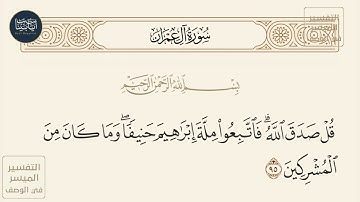 سُورَةُ آلِ عِمْرَانَ
بِسْمِ اللَّهِ الرَّحْمَٰنِ الرَّحِيمِ
قُلْ صَدَقَ ٱللَّهُۗ فَٱتَّبِعُوا۟ مِلَّةَ إِبْرَٰهِيمَ حَنِيفًاۖ وَمَا كَانَ مِنَ
ٱلْمُشْرِكِينَ ٩٥
التفسير
الميسر
في الوصف
التفسير
الميسر
في الوصف